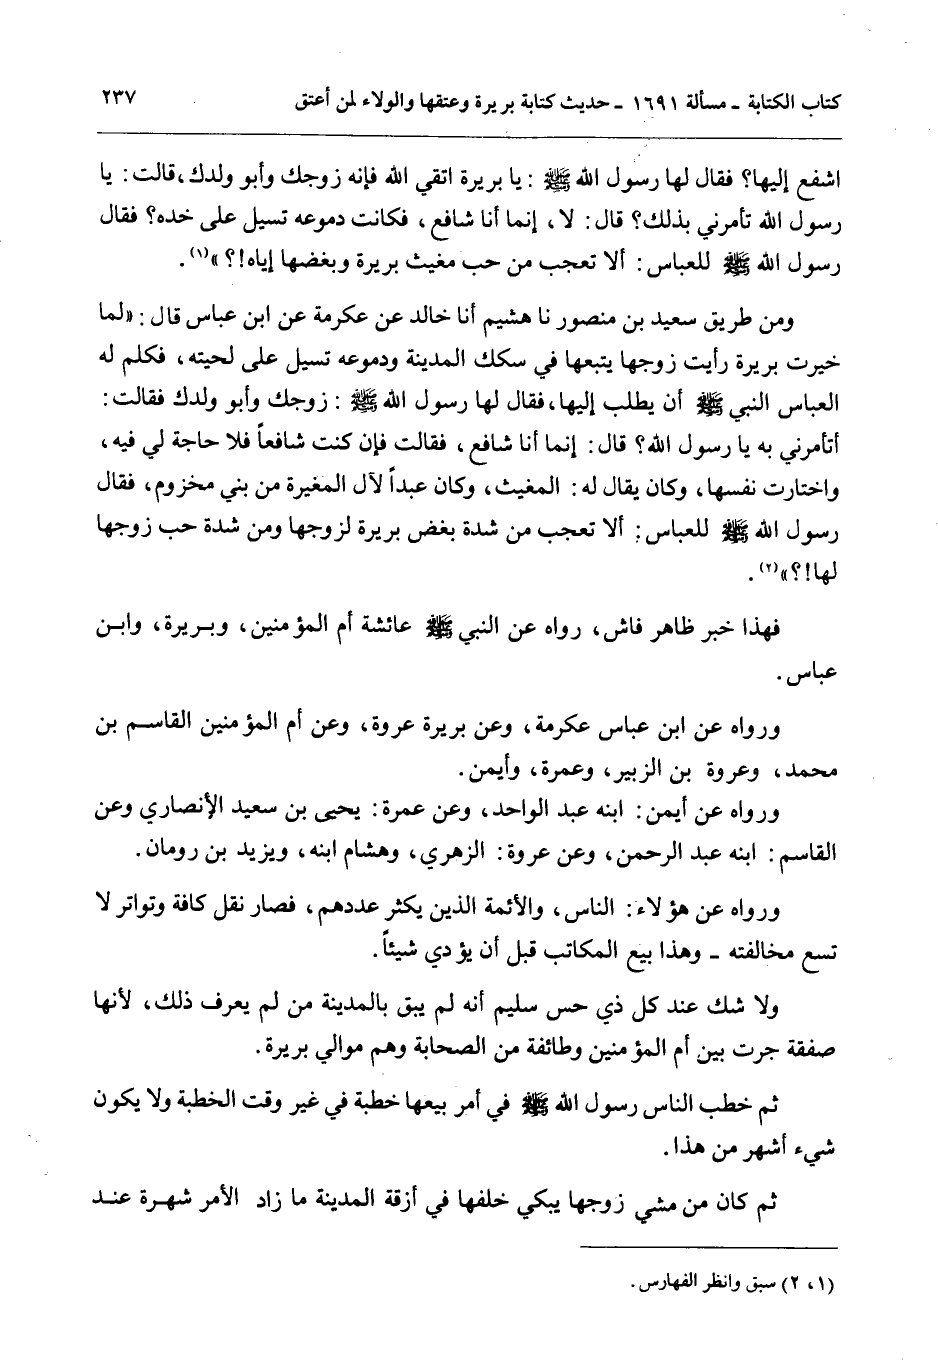 كتاب الكتابة ـ مسألة ١٦٩١ ـ حديث كتابة بريرة وعتقها والولاء لمن أعتق ٢٣٧
اشفع إليها؟ فقال لها رسول الله ﷺ : يا بريرة اتقي الله فإنه زوجك وأبو ولدك ، قالت : يا
رسول الله تأمرني بذلك؟ قال : لا ، إنما أنا شافع ، فكانت دموعه تسيل على خده؟ فقال
رسول الله ﷺ للعباس : ألا تعجب من حب مغيث بريرة وبغضها إياه!؟ »(١) .
ومن طريق سعيد بن منصور نا هشيم أنا خالد عن عكرمة عن ابن عباس قال : «لما
خيرت بريرة رأيت زوجها يتبعها في سكك المدينة ودموعه تسيل على لحيته ، فكلم له
العباس النبي ﷺ أن يطلب إليها ، فقال لها رسول الله ﷺ : زوجك وأبو ولدك فقالت :
أتأمرني به يا رسول الله؟ قال : إنما أنا شافع ، فقالت فإن كنت شافعاً فلا حاجة لي فيه ،
واختارت نفسها ، وكان يقال له : المغيث ، وكان عبداً لآل المغيرة من بني مخزوم ، فقال
رسول الله ﷺ للعباس : ألا تعجب من شدة بغض بريرة لزوجها ومن شدة حب زوجها
لها!؟»(٢) .
فهذا خبر ظاهر فاش ، رواه عن النبي ﷺ عائشة أم المؤمنين ، وبـريرة ، وابـن
عباس .
ورواه عن ابن عباس عكرمة ، وعن بريرة عروة ، وعن أم المؤمنين القاسـم بن
محمد ، وعروة بن الزبير ، وعمرة ، وأيمن .
ورواه عن أيمن : ابنه عبد الواحد ، وعن عمرة : يحيى بن سعيد الأنصاري وعن
القاسم : ابنه عبد الرحمن ، وعن عروة : الزهري ، وهشام ابنه ، ويزيد بن رومان .
ورواه عن هؤلاء : الناس ، والأئمة الذين يكثر عددهم ، فصار نقل كافة وتواتر لا
تسع مخالفته ـ وهذا بيع المكاتب قبل أن يؤدي شيئاً .
ولا شك عند كل ذي حس سليم أنه لم يبق بالمدينة من لم يعرف ذلك ، لأنها
صفقة جرت بين أم المؤمنين وطائفة من الصحابة وهم موالي بريرة .
ثم خطب الناس رسول الله ﷺ في أمر بيعها خطبة في غير وقت الخطبة ولا يكون
شيء أشهر من هذا .
ثم كان من مشي زوجها يبكي خلفها في أزقة المدينة ما زاد الأمر شهـرة عنـد
(١ ، ٢) سبق وانظر الفهارس .